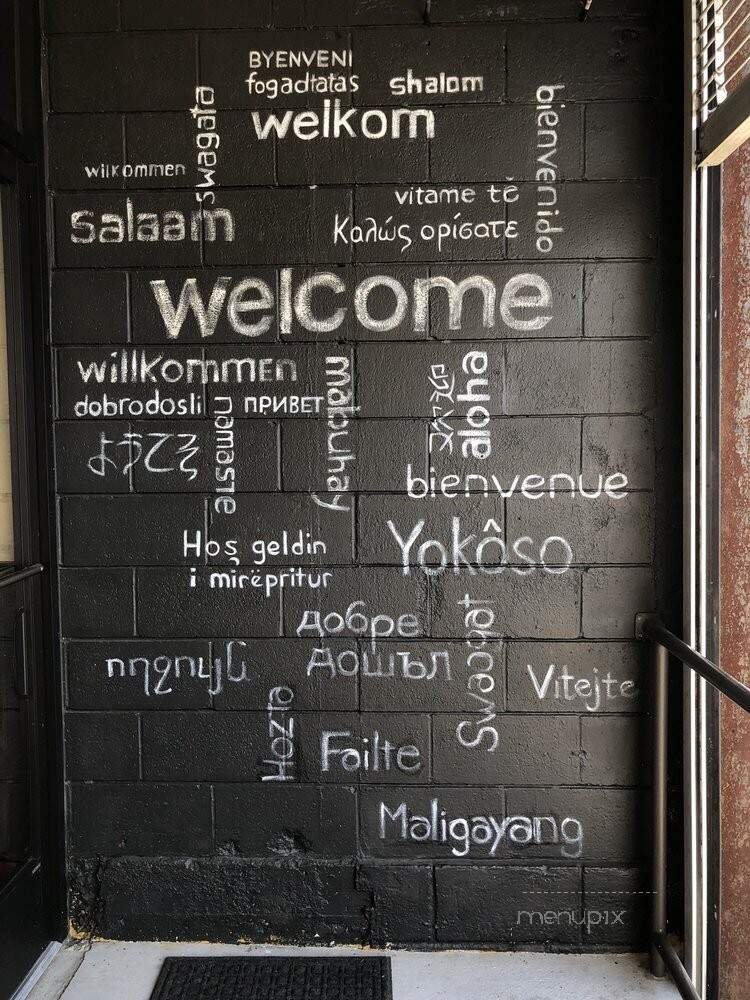 BYENVENI
fogadtatas
shalom
swagata
welkom
bienvenido
wilkommen
vitame tě
salaam
Καλώς ορίσατε
welcome
willkommen
mabuhay
aloha
dobrodosli
namaste
ПРИВЕТ
ようこそ
bienvenue
Hoş geldin
Yokôso
i mirëpritur
добре
дошъл
Swaagat
ողջույն
Vitejte
Hozie
Failte
Maligayang
menupix